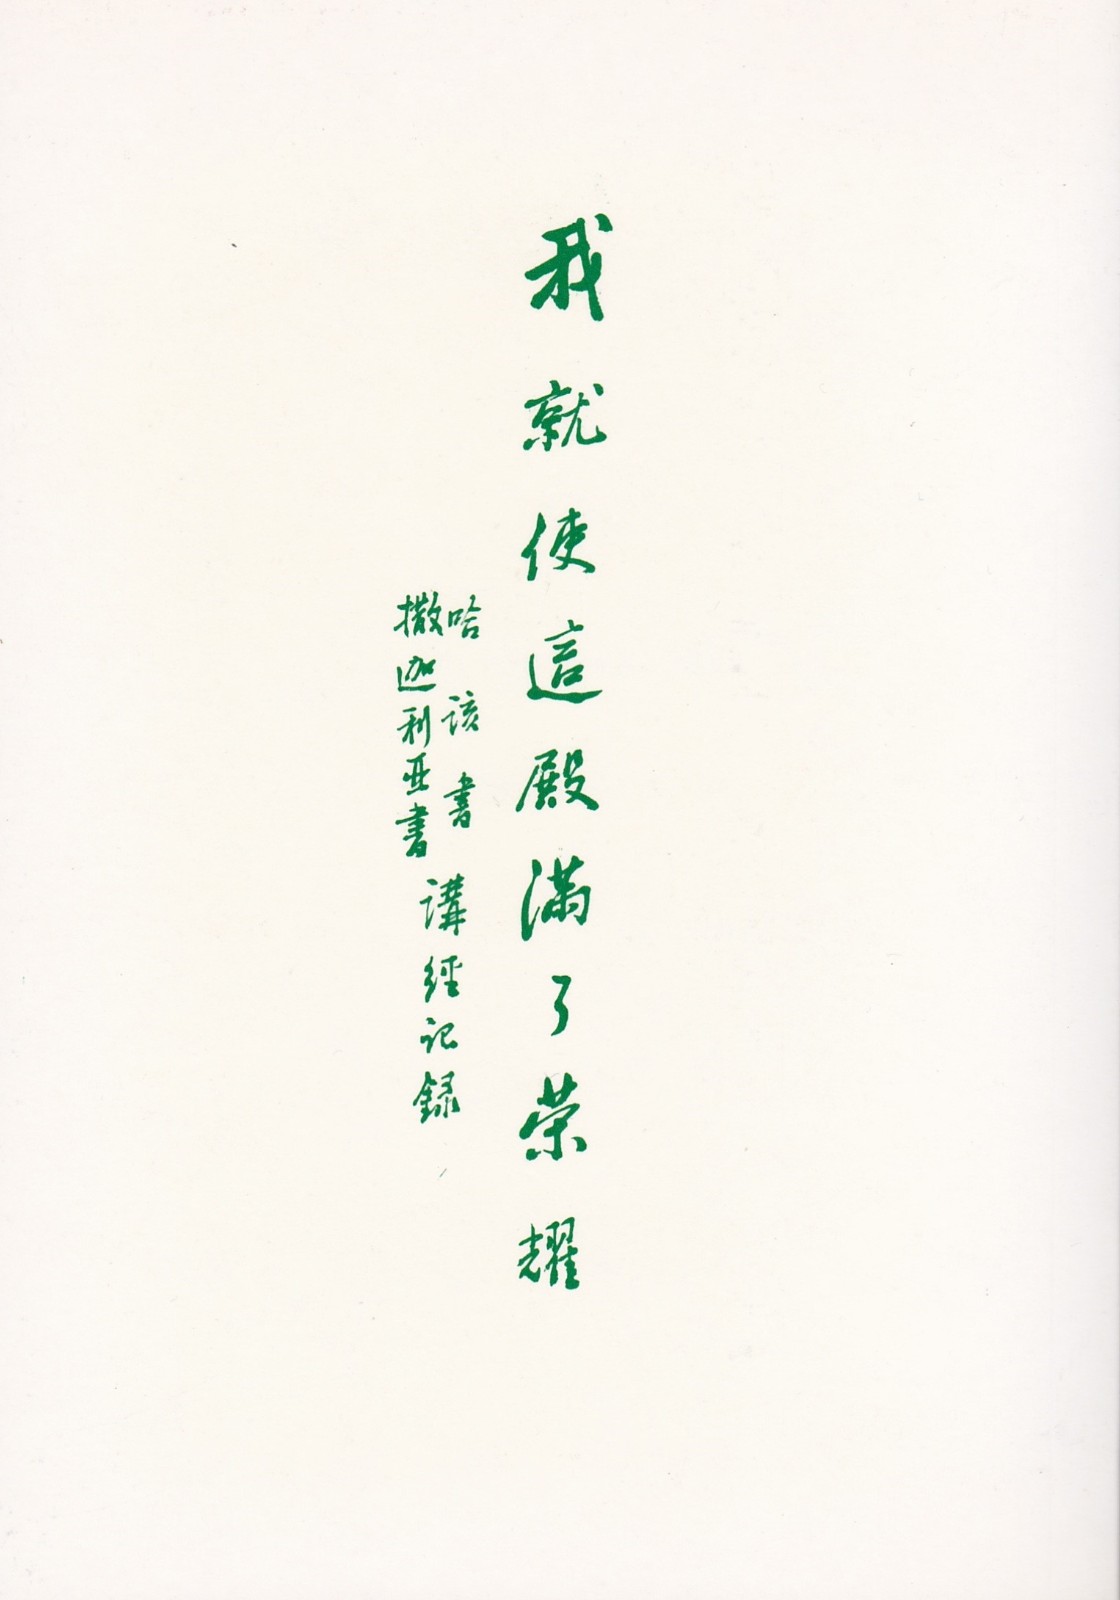 我就使這殿滿了荣耀
哈该書
撒迦利亚書
講經记録